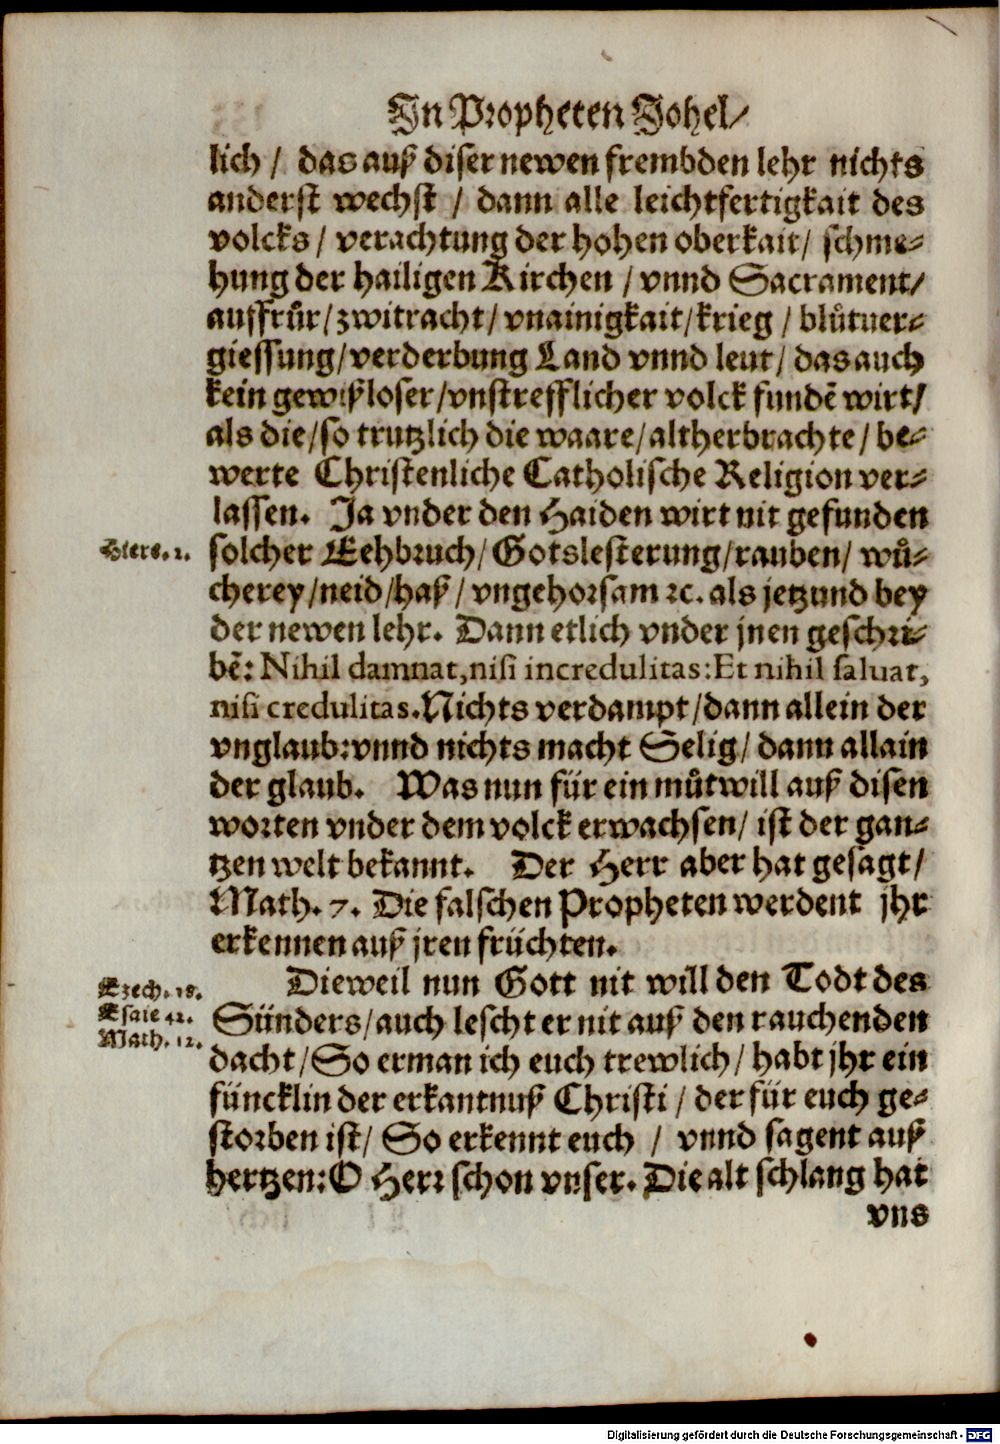 In Propheten Johel/
lich / das auß diser newen frembden lehr nichts
anderst wechst / dann alle leichtfertigkait des
volcks / verachtung der hohen oberkait / schme⸗
hung der hailigen Kirchen / vnnd Sacrament/
auffrůr / zwitracht / vnainigkait / krieg / blůtuer⸗
giessung / verderbung Land vnnd leut / das auch
kein gewißloser / vnstrefflicher volck fundẽ wirt /
als die / so trutzlich die waare / altherbrachte / be⸗
werte Christenliche Catholische Religion ver⸗
lassen. Ja vnder den Haiden wirt nit gefunden
Hiere. 2.
solcher Eehbruch / Gotslesterung / rauben / wů⸗
cherey / neid / haß / vngehorsam ꝛc. als jetzund bey
der newen lehr. Dann etlich vnder jnen geschri⸗
bẽ: Nihil damnat, nisi incredulitas: Et nihil saluat,
nisi credulitas. Nichts verdampt / dann allein der
vnglaub: vnnd nichts macht Selig / dann allain
der glaub. Was nun für ein můtwill auß disen
worten vnder dem volck erwachsen / ist der gan⸗
tzen welt bekannt. Der Herr aber hat gesagt /
Math. 7. Die falschen Propheten werdent jhr
erkennen auß jren früchten.
Dieweil nun Gott nit will den Todt des
Ezech. 18.
Esaie 42.
Math. 12.
Sünders / auch lescht er nit auß den rauchenden
dacht / So erman ich euch trewlich / habt jhr ein
füncklin der erkantnuß Christi / der für euch ge⸗
storben ist / So erkennt euch / vnnd sagent auß
hertzen: O Herr schon vnser. Die alt schlang hat
vns
Digitalisierung gefördert durch die Deutsche Forschungsgemeinschaft - DFG